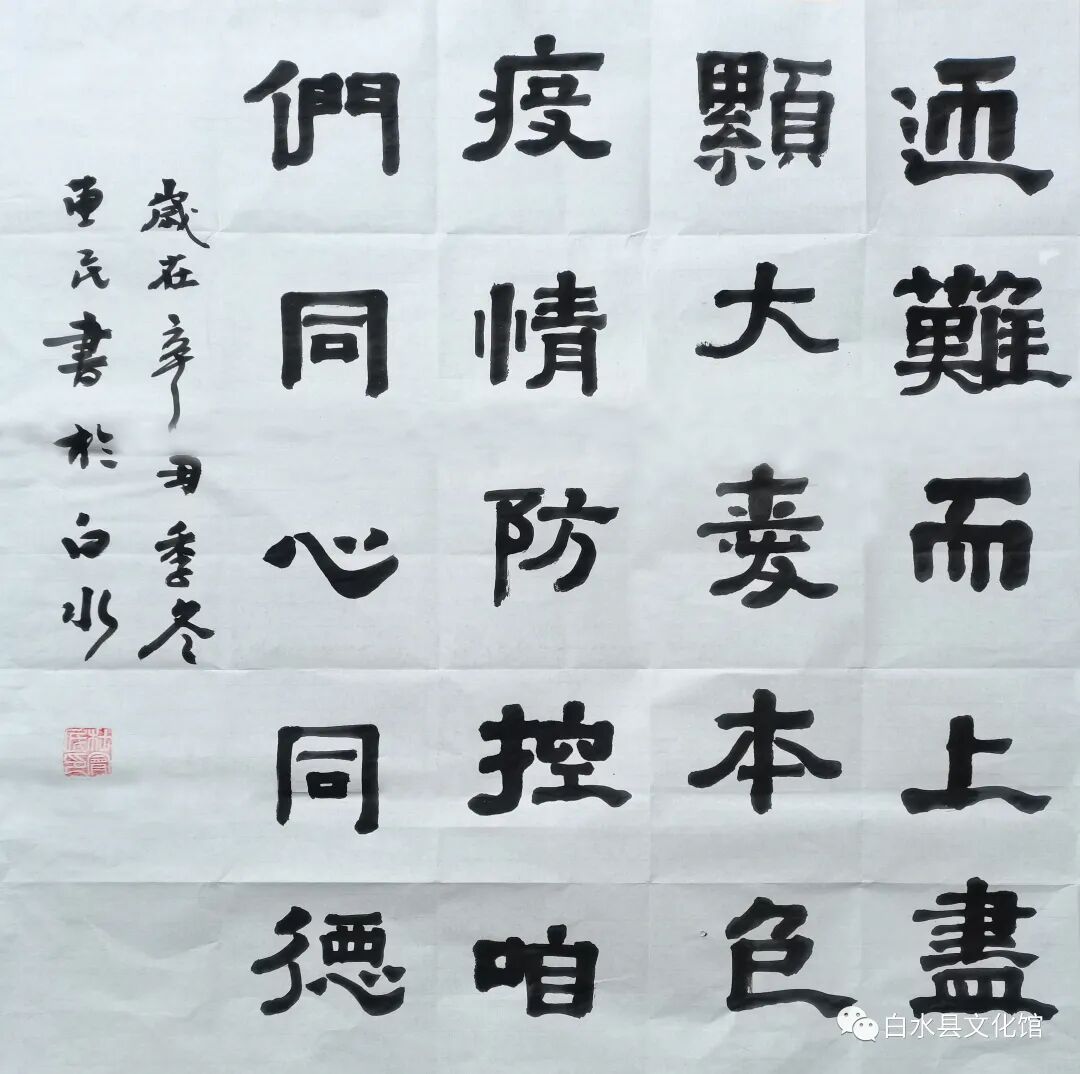 迎難而上盡
顯大愛本色
疫情防控咱
們同心同德
歲在辛丑季冬
軍民書於白水
白水县文化馆